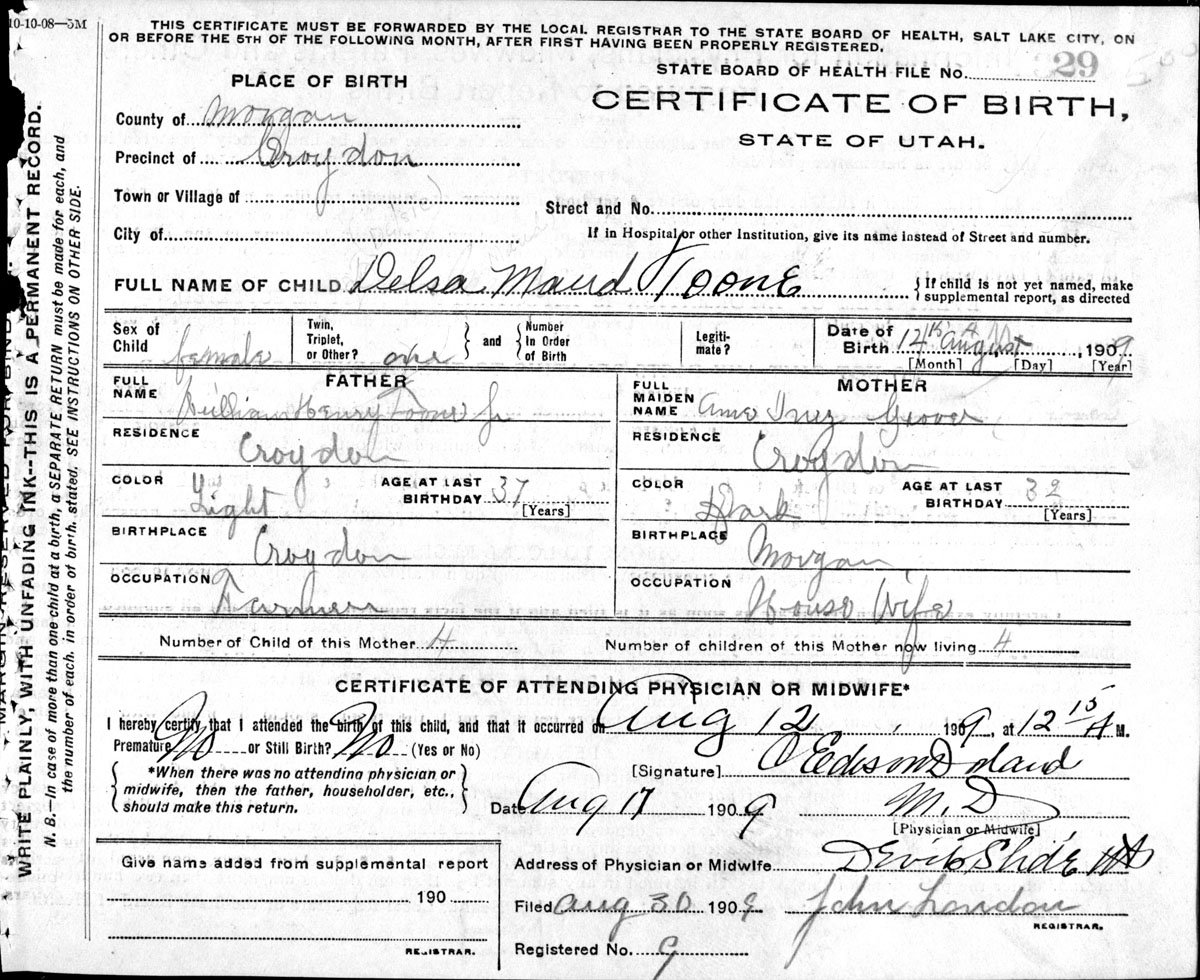 10-10-08—5M
THIS CERTIFICATE MUST BE FORWARDED BY THE LOCAL REGISTRAR TO THE STATE BOARD OF HEALTH, SALT LAKE CITY, ON
OR BEFORE THE 5TH OF THE FOLLOWING MONTH, AFTER FIRST HAVING BEEN PROPERLY REGISTERED.
STATE BOARD OF HEALTH FILE No. 29
PLACE OF BIRTH
CERTIFICATE OF BIRTH,
STATE OF UTAH.
County of Morgan
Precinct of Croydon
Town or Village of
Street and No.
City of
If in Hospital or other Institution, give its name instead of Street and number.
FULL NAME OF CHILD Delsa Maud Toone
{ If child is not yet named, make
supplemental report, as directed
Sex of Child female
Twin, Triplet, or Other? one } and { Number In Order of Birth
Legiti-mate?
Date of Birth 12 August 1909
[Month] [Day] [Year]
FATHER
FULL NAME William Henry Toone Jr
RESIDENCE Croydon
COLOR Light
AGE AT LAST BIRTHDAY 37 [Years]
BIRTHPLACE Croydon
OCCUPATION Farmer
MOTHER
FULL MAIDEN NAME Inez
RESIDENCE Croydon
COLOR Dark
AGE AT LAST BIRTHDAY 32 [Years]
BIRTHPLACE Morgan
OCCUPATION House Wife
Number of Child of this Mother 4
Number of children of this Mother now living 4
CERTIFICATE OF ATTENDING PHYSICIAN OR MIDWIFE*
I hereby certify that I attended the birth of this child, and that it occurred on Aug 12, 1909, at 12 15 A M.
Premature No or Still Birth? No (Yes or No)
{ *When there was no attending physician or
midwife, then the father, householder, etc.,
should make this return. }
[Signature]
Date Aug 17 1909 M.D
[Physician or Midwife]
Give name added from supplemental report
190
REGISTRAR.
Address of Physician or Midwife Devils Slide
Filed Aug 30 1909 John London
REGISTRAR.
Registered No. 9
MARGIN RESERVED FOR BINDING.
WRITE PLAINLY, WITH UNFADING INK--THIS IS A PERMANENT RECORD.
N. B.—In case of more than one child at a birth, a SEPARATE RETURN must be made for each, and
the number of each, in order of birth, stated. SEE INSTRUCTIONS ON OTHER SIDE.